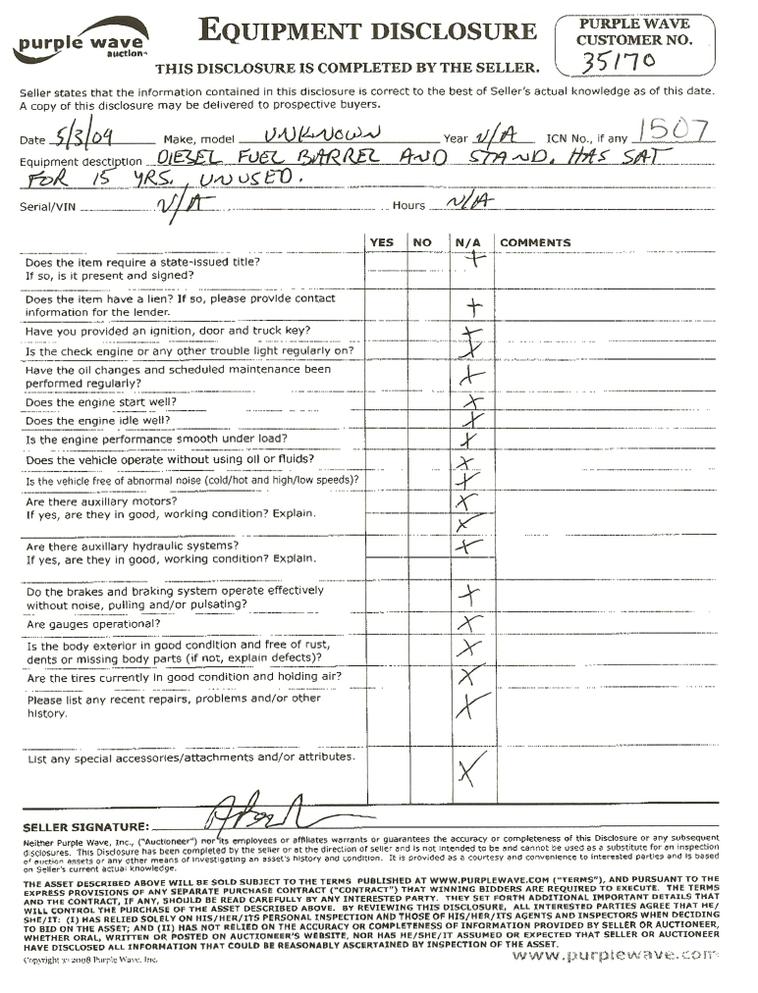 purple wave
auction™
EQUIPMENT DISCLOSURE
THIS DISCLOSURE IS COMPLETED BY THE SELLER.
PURPLE WAVE
CUSTOMER NO.
35170
Seller states that the information contained in this disclosure is correct to the best of Seller's actual knowledge as of this date.
A copy of this disclosure may be delivered to prospective buyers.
Date 5/3/09 Make, model UNKNOWN Year N/A ICN No., if any 1507
Equipment desctiption DIESEL FUEL BARREL AND STAND. HAS SAT
FOR 15 YRS, UNUSED.
Serial/VIN N/A Hours N/A
YES NO N/A COMMENTS
Does the item require a state-issued title? X
If so, is it present and signed?
Does the item have a lien? If so, please provide contact
information for the lender. X
Have you provided an ignition, door and truck key? X
Is the check engine or any other trouble light regularly on? X
Have the oil changes and scheduled maintenance been
performed regularly? X
Does the engine start well? X
Does the engine idle well? X
Is the engine performance smooth under load? X
Does the vehicle operate without using oil or fluids? X
Is the vehicle free of abnormal noise (cold/hot and high/low speeds)? X
Are there auxillary motors? X
If yes, are they in good, working condition? Explain. X
Are there auxillary hydraulic systems? X
If yes, are they in good, working condition? Explain.
Do the brakes and braking system operate effectively
without noise, pulling and/or pulsating? X
Are gauges operational? X
Is the body exterior in good condition and free of rust,
dents or missing body parts (if not, explain defects)? X
Are the tires currently in good condition and holding air? X
Please list any recent repairs, problems and/or other
history. X
List any special accessories/attachments and/or attributes. X
SELLER SIGNATURE:
Neither Purple Wave, Inc., ("Auctioneer") nor its employees or affiliates warrants or guarantees the accuracy or completeness of this Disclosure or any subsequent
disclosures. This Disclosure has been completed by the seller or at the direction of seller and is not intended to be and cannot be used as a substitute for an inspection
of auction assets or any other means of investigating an asset's history and condition. It is provided as a courtesy and convenience to interested parties and is based
on Seller's current actual knowledge.
THE ASSET DESCRIBED ABOVE WILL BE SOLD SUBJECT TO THE TERMS PUBLISHED AT WWW.PURPLEWAVE.COM ("TERMS"), AND PURSUANT TO THE
EXPRESS PROVISIONS OF ANY SEPARATE PURCHASE CONTRACT ("CONTRACT") THAT WINNING BIDDERS ARE REQUIRED TO EXECUTE. THE TERMS
AND THE CONTRACT, IF ANY, SHOULD BE READ CAREFULLY BY ANY INTERESTED PARTY. THEY SET FORTH ADDITIONAL IMPORTANT DETAILS THAT
WILL CONTROL THE PURCHASE OF THE ASSET DESCRIBED ABOVE. BY REVIEWING THIS DISCLOSURE, ALL INTERESTED PARTIES AGREE THAT HE/
SHE/IT: (I) HAS RELIED SOLELY ON HIS/HER/ITS PERSONAL INSPECTION AND THOSE OF HIS/HER/ITS AGENTS AND INSPECTORS WHEN DECIDING
TO BID ON THE ASSET; AND (II) HAS NOT RELIED ON THE ACCURACY OR COMPLETENESS OF INFORMATION PROVIDED BY SELLER OR AUCTIONEER,
WHETHER ORAL, WRITTEN OR POSTED ON AUCTIONEER'S WEBSITE, NOR HAS HE/SHE/IT ASSUMED OR EXPECTED THAT SELLER OR AUCTIONEER
HAVE DISCLOSED ALL INFORMATION THAT COULD BE REASONABLY ASCERTAINED BY INSPECTION OF THE ASSET.
Copyright © 2008 Purple Wave, Inc.
www.purplewave.com